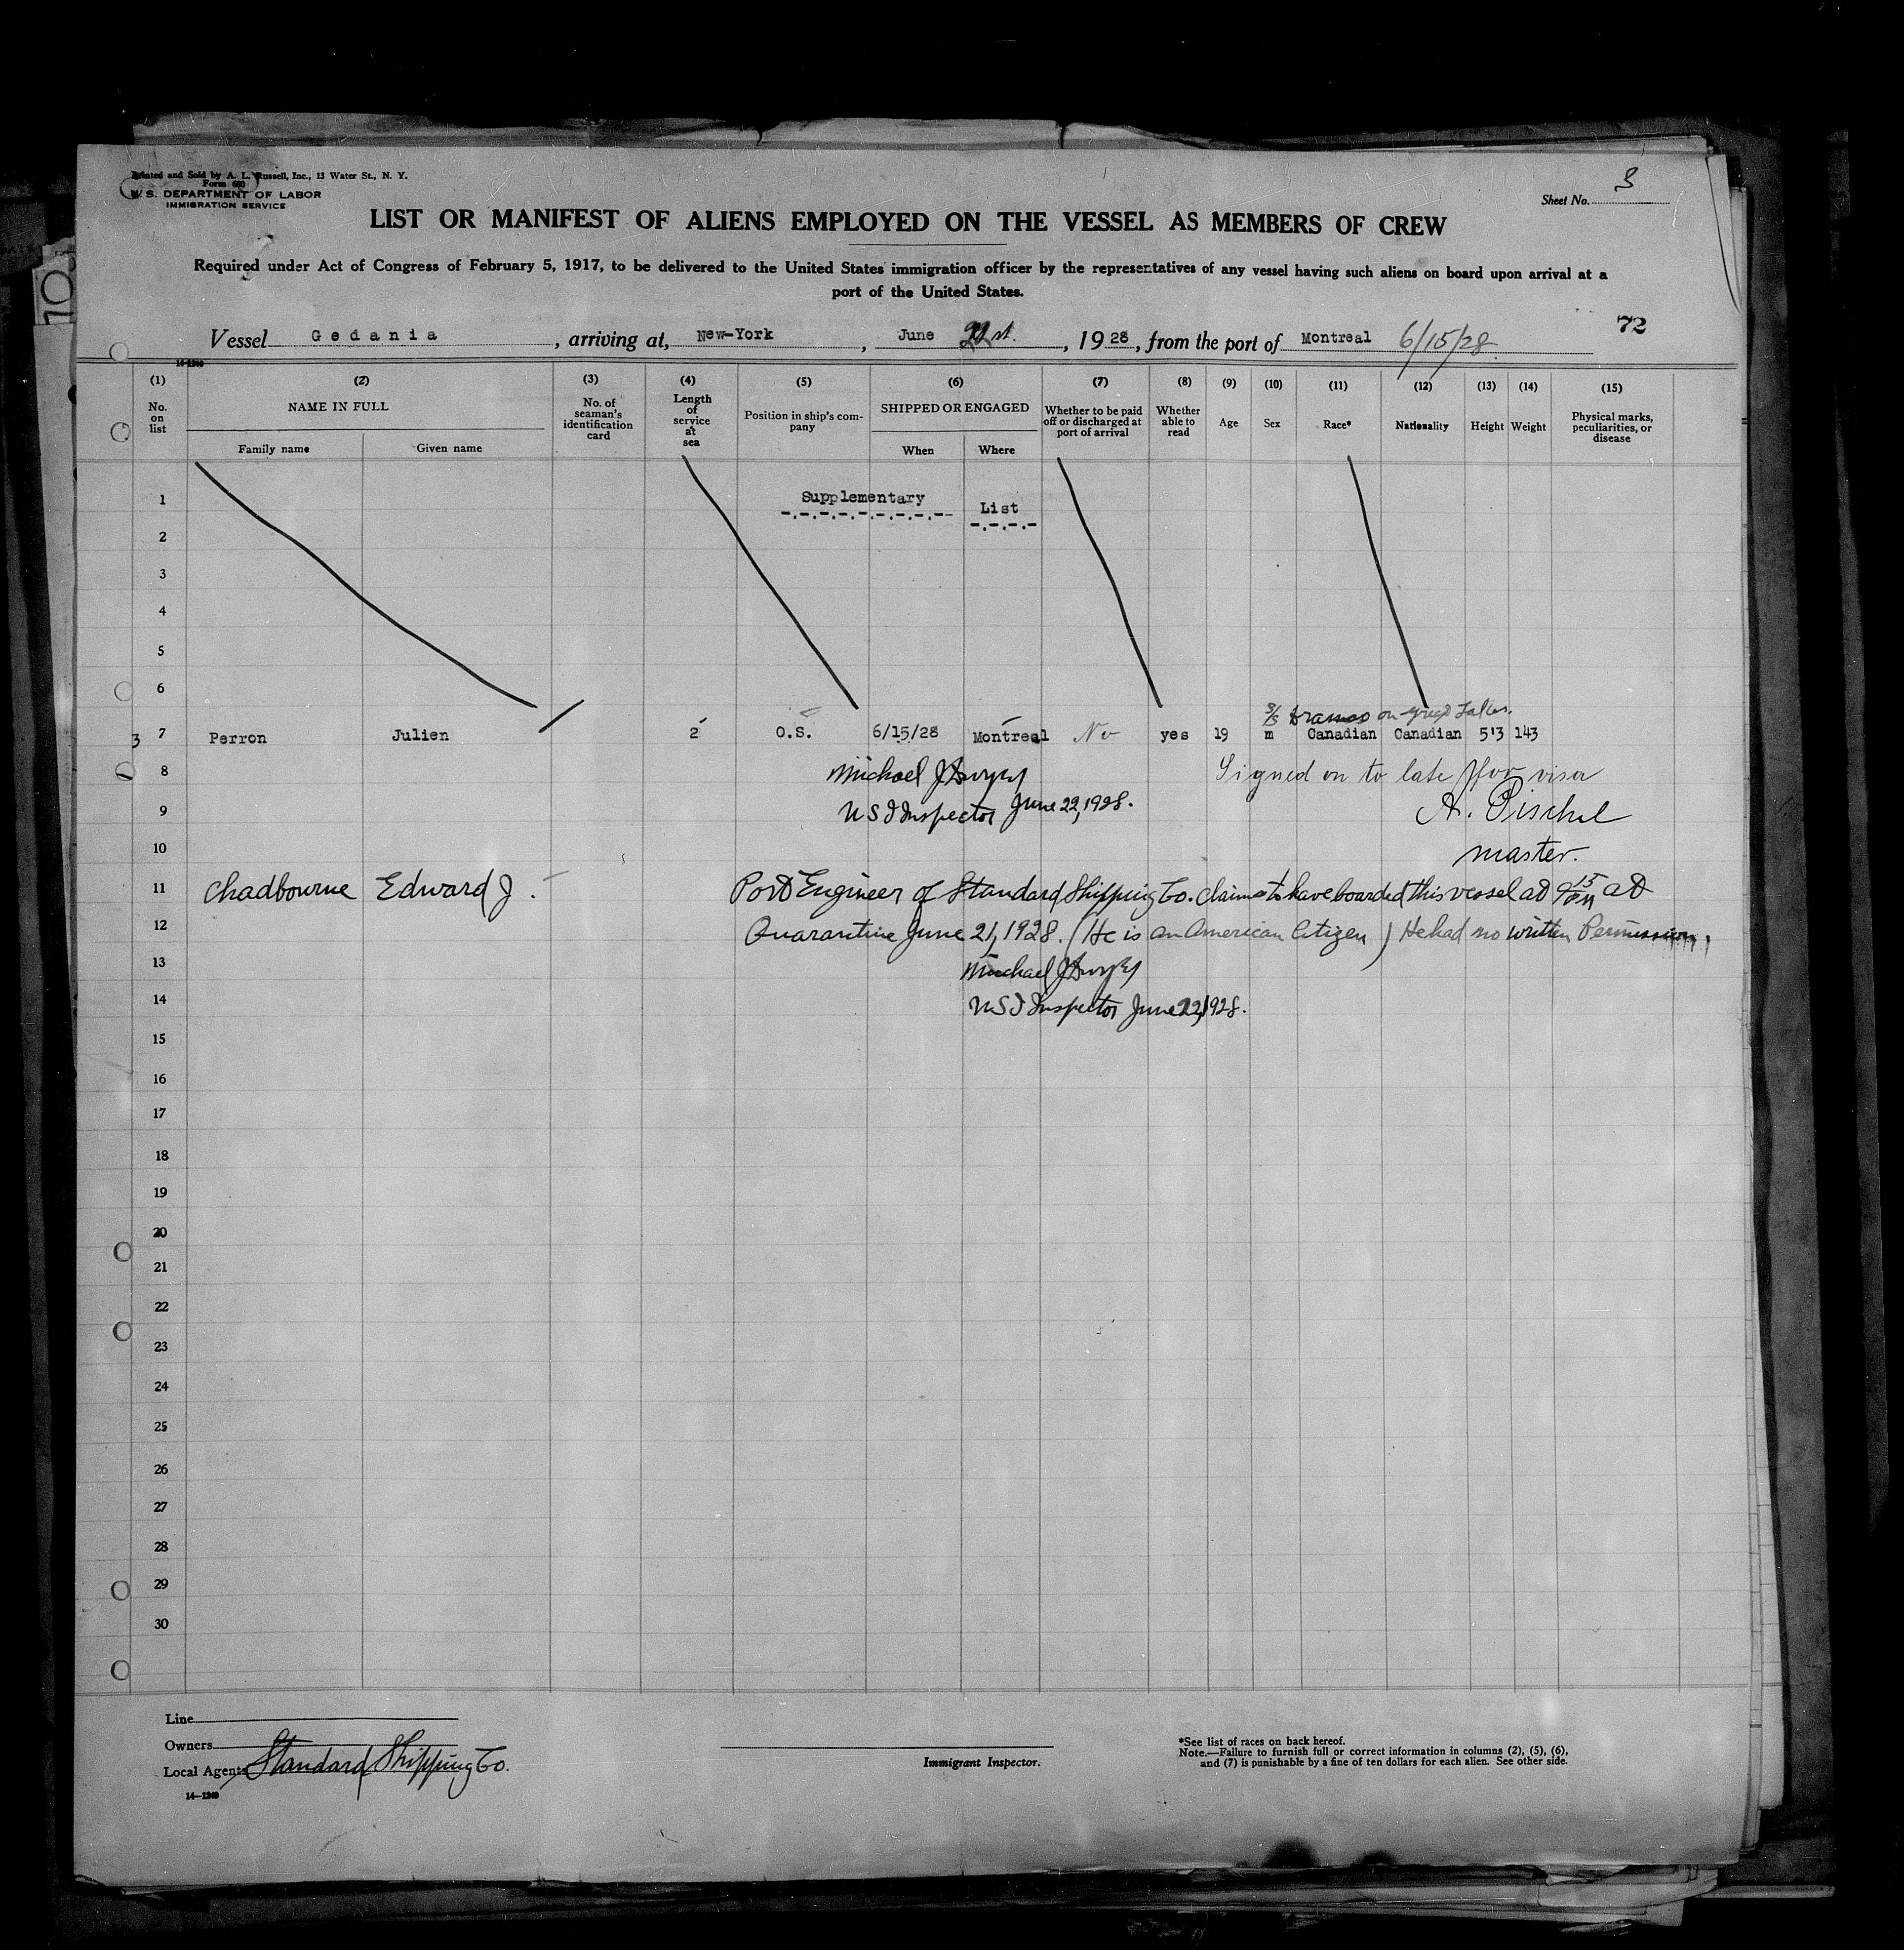 Printed and Sold by A. L. Russell, Inc., 13 Water St., N. Y.
Form 680
U. S. DEPARTMENT OF LABOR
IMMIGRATION SERVICE
Sheet No. 3
LIST OR MANIFEST OF ALIENS EMPLOYED ON THE VESSEL AS MEMBERS OF CREW
Required under Act of Congress of February 5, 1917, to be delivered to the United States immigration officer by the representatives of any vessel having such aliens on board upon arrival at a
port of the United States.
72
Vessel Gedania, arriving at, New-York, June 21st., 1928, from the port of Montreal 6/15/28
14-1240
(1) (2) (3) (4) (5) (6) (7) (8) (9) (10) (11) (12) (13) (14) (15)
No. on list
NAME IN FULL
Family name Given name
No. of seaman's identification card
Length of service at sea
Position in ship's company
SHIPPED OR ENGAGED
When Where
Whether to be paid off or discharged at port of arrival
Whether able to read
Age
Sex
Race*
Nationality
Height
Weight
Physical marks, peculiarities, or disease
1 Supplementary List
2
3
4
5
6
on Great Lakes.
3 7 Perron Julien 2 O.S. 6/15/28 Montreal No yes 19 m Canadian Canadian 5'3 143
8 Michael J Dwyer Signed on to late for visa
9 U S I Inspector June 22, 1928. A. Pischel
10 master.
11 Chadbourne Edward J. Port Engineer of Standard Shipping Co. claims to have boarded this vessel at 9 15 am at
12 Quarantine June 21, 1928. (He is an American Citizen) He had no written Permission.
13 Michael J Dwyer
14 U S I Inspector June 22, 1928.
15
16
17
18
19
20
21
22
23
24
25
26
27
28
29
30
Line
Owners
Local Agents Standard Shipping Co.
14-1240
Immigrant Inspector.
*See list of races on back hereof.
Note.—Failure to furnish full or correct information in columns (2), (5), (6),
and (7) is punishable by a fine of ten dollars for each alien. See other side.